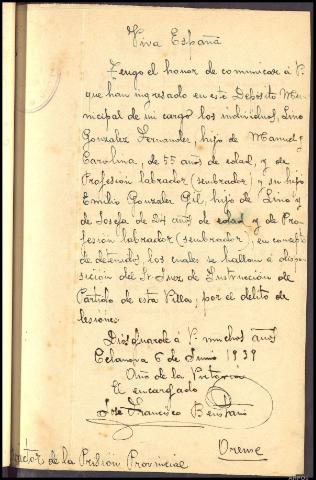 Viva España
Tengo el honor de comunicar á V.
que han ingresado en este Depósito Mu-
nicipal de mi cargo los individuos, Lino
Gonzalez Fernandez, hijo de Manuel y
Carolina, de 55 años de edad, y de
Profesión labrador (sembrador) y su hijo
Emilio Gonzalez Gil, hijo de Lino y
de Josefa de 24 años de edad y de Pro-
fesión labrador (sembrador), en concepto
de detenidos, los cuales se hallan á dispo-
sición del Sr Juez de Instrucción de
Partido de esta Villa, por el delito de
lesiones.
Dios guarde á V. muchos años
Celanova 6 de Junio 1939
Año de la Victoria
El encargado
José Francisco
Orense
de la Prisión Provincial